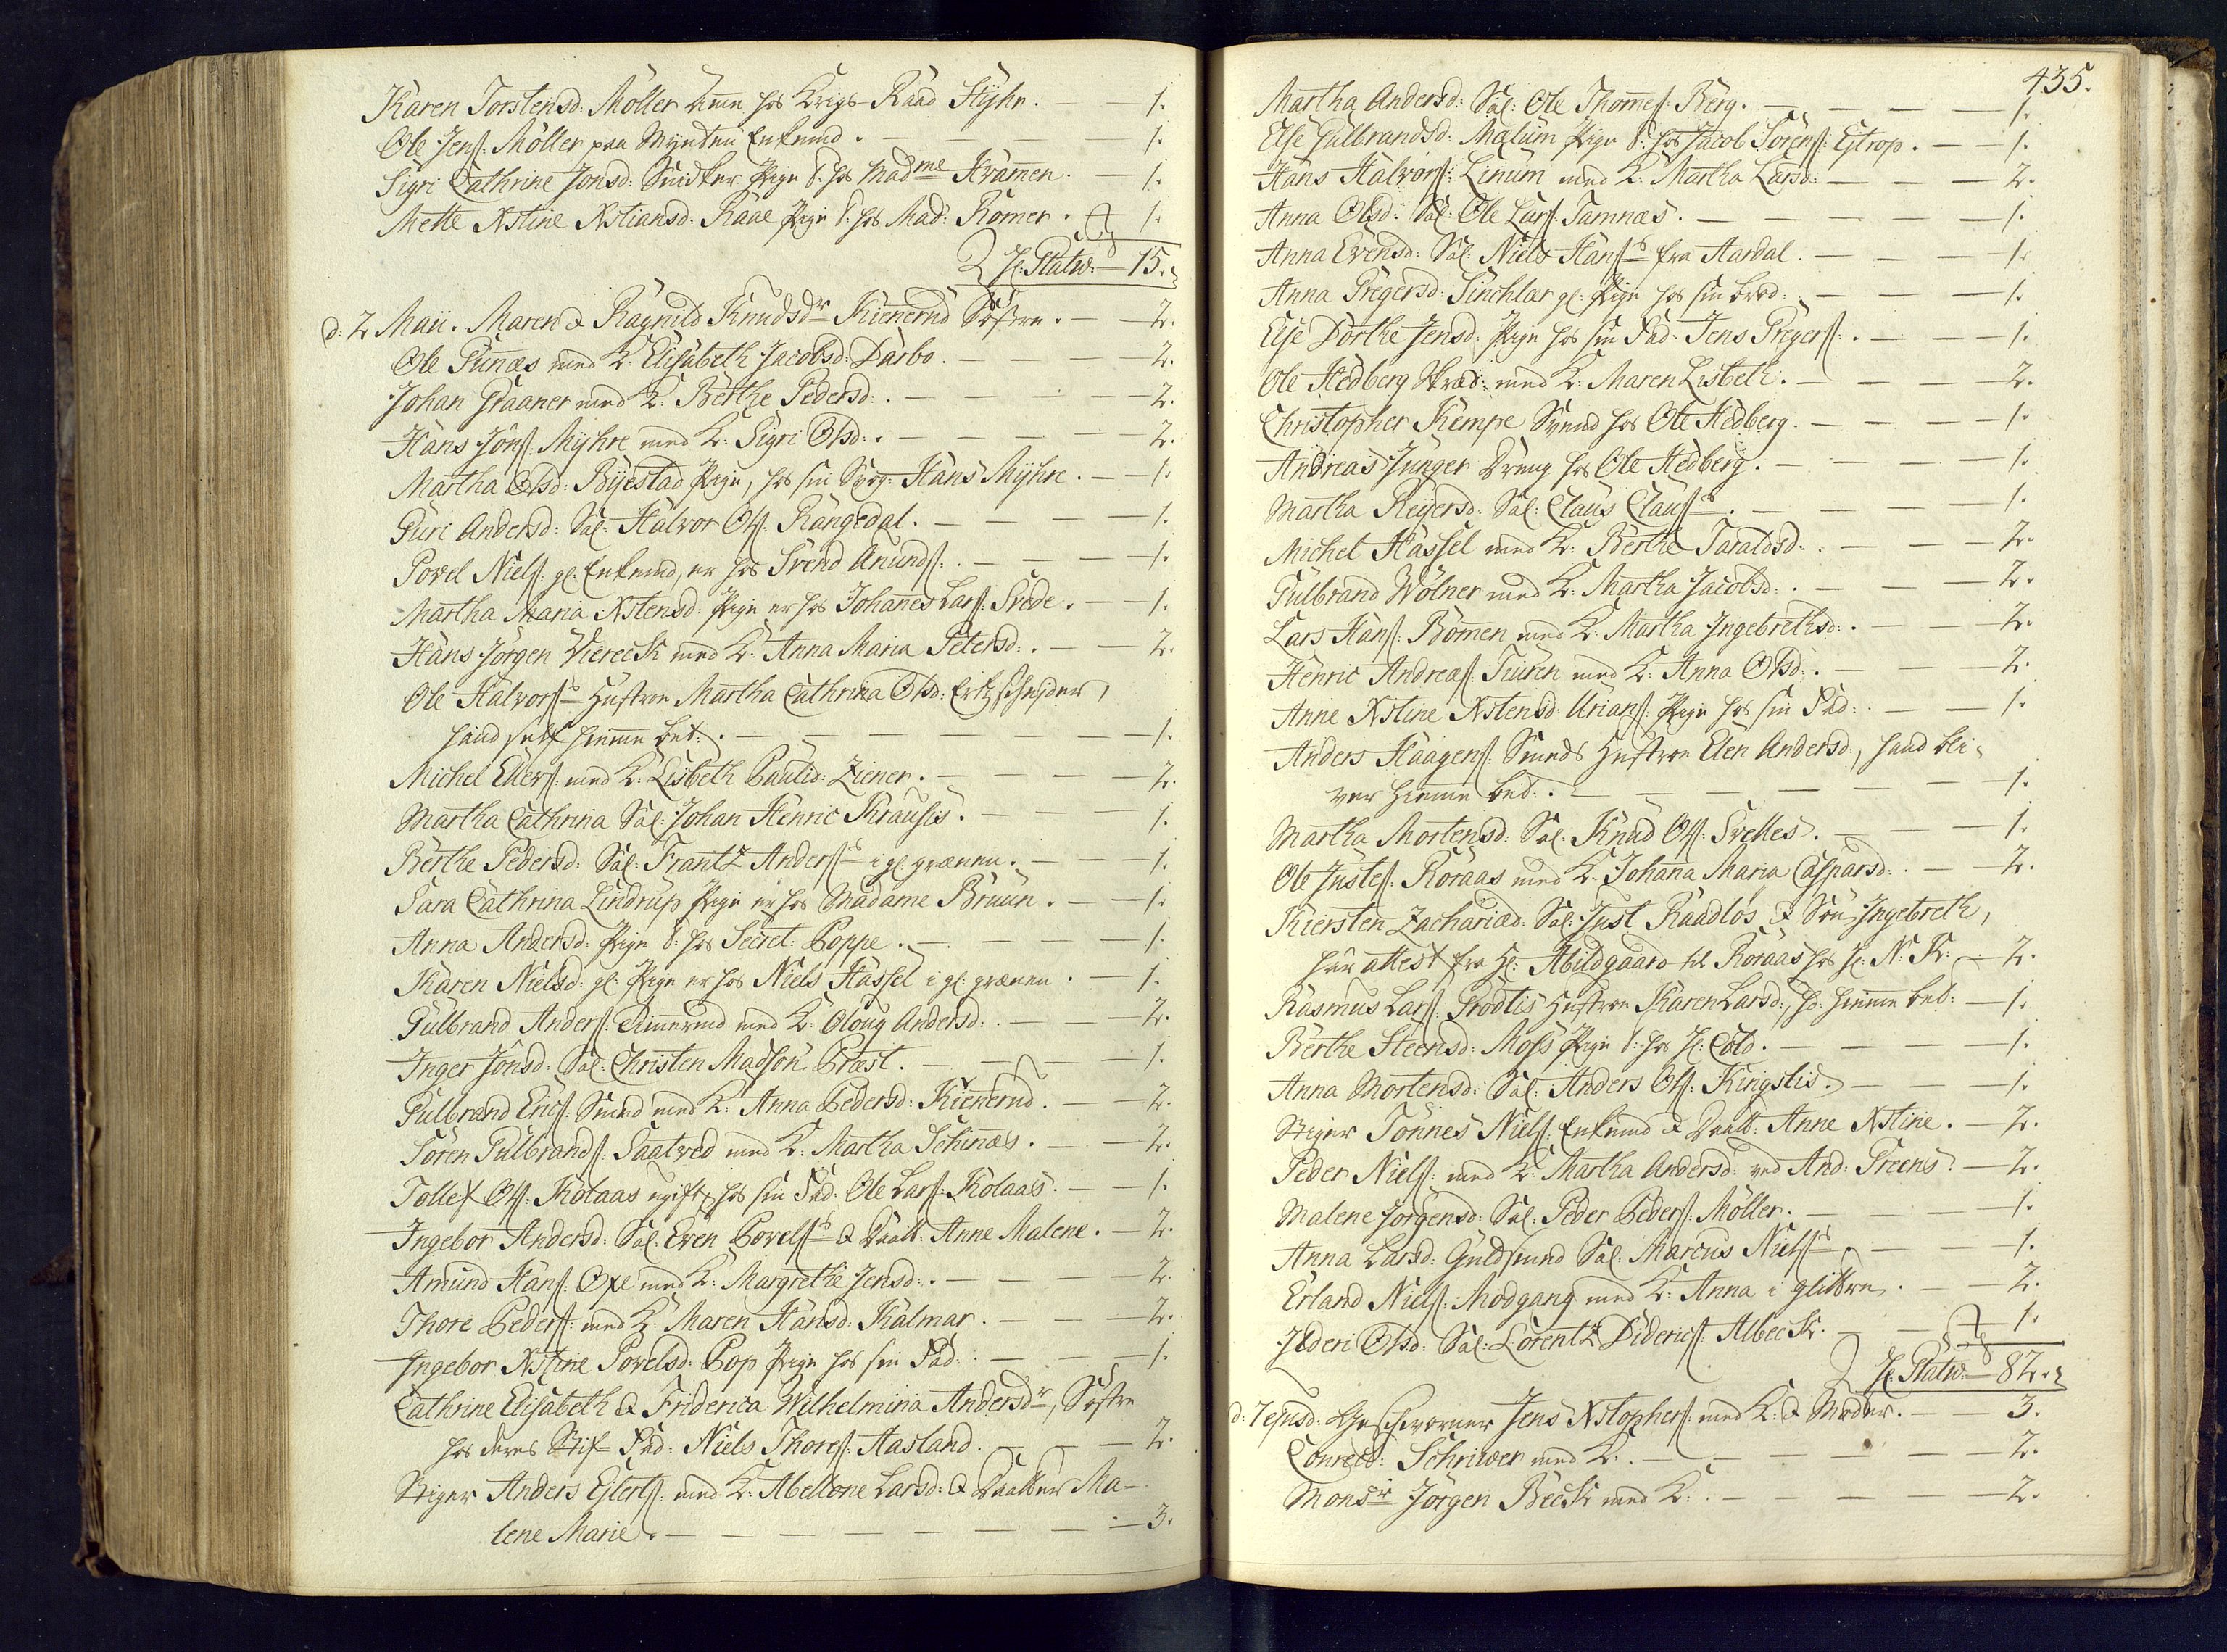 Karen Torstensd: Möller Amme hos Krigs-Raad Hÿhr. — 1.
Ole Jens: Möller paa Mynten Enkemd. — 1.
Sigri Cathrine Jonsd: Smidter Pige t: hos Madme Kramen. — 1.
Mette Xstine Xstiansd: Raae Pige t: hos Mad: Römer. 1.
H: Statw: — 15.
d: 2 Maii. Maren & Ragnild Knudsdr Kienerud Søstre. — 2.
Ole Gunæs med K: Elisabeth Jacobsd: Darbo. — 2.
Johan Graaner med K: Berthe Pedersd: — 2.
Hans Jons: Myhre med K: Sigri Olsd: — 2.
Martha Olsd: Byestad Pige, hos sin Svog: Hans Myhre. — 1.
Guri Andersd: Sal: Halvor Ols: Rangedal. — 1.
Povel Niels: gl: Enkemd, er hos Svend Anunds: — 1.
Martha Maria Xstensd: Pige er hos Johanes Lars: Svede. — 1.
Hans Jörgen Viereck med K: Anna Maria Petersd: — 2.
Ole Halvors: Hustroe Martha Cathrina Olsd: Ertzscheider,
hand self hiemme bet: — 1.
Michel Ellers: med K: Lisbeth Paulsd: Ziener. — 2.
Martha Cathrina Sal: Johan Henric Krausis. — 1.
Berthe Pedersd: Sal: Frantz Anders: i gl: grænen. — 1.
Sara Cathrina Lindrup Pige er hos Madame Bruun. — 1.
Anna Andersd: Pige t: hos Secret: Poppe. — 1.
Karen Nielsd: gl: Pige er hos Niels Hassel i gl: grænen. 1.
Gulbrand Anders: Aimerud med K: Oloug Andersd: — 2.
Inger Jonsd: Sal: Christen Madson Præst. — 1.
Gulbrand Erics: Smed med K: Anna Pedersd: Kienerud. — 2.
Sören Gulbrands: Saatved med K: Martha Schinæs. — 2.
Tollef Ols: Kolaas ugift, hos sin Fad: Ole Lars: Kolaas. — 1.
Ingebor Andersd: Sal: Even Povels: & Daatt: Anne Malene. — 2.
Amund Hans: Oxe med K: Margrethe Jensd: — 2.
Thore Peders: med K: Maren Hansd: Kalmar. — 2.
Ingebor Xstine Povelsd: Pop Pige hos sin Fad: — 1.
Cathrine Elisabeth & Friderica Wilhelmina Andersdr, Søstre
hos deres Stif Fad: Niels Thores: Aasland. — 2.
Stiger Anders Eilerts: med K: Abellone Larsd: & Daatter Ma-
lene Marie. — 3.
435.
Martha Andersd: Sal: Ole Thomes: Berg. — 1.
Else Gulbrandsd: Mælum Pige t: hos Jacob Sörens: Estrop. — 1.
Hans Halvors: Linum med K: Martha Larsd: — 2.
Anna Olsd: Sal: Ole Lars: Tamnæs. — 1.
Anna Evensd: Sal: Niels Hans: fra Aardal. — 1.
Anna Gregersd: Sinchlar gl: Pige hos sin brod: — 1.
Else Dorthe Jensd: Pige hos sin Fad: Jens Gregers: — 1.
Ole Hedberg Skræd: med K: Maren Lisbeth. — 2.
Christopher Kempe Svend hos Ole Hedberg. — 1.
Andreas Junger Dreng hos Ole Hedberg. — 1.
Martha Reyersd: Sal: Claus Claus: — 1.
Michel Hassel med K: Berthe Taraldsd: — 2.
Gulbrand Wölner med K: Martha Jacobsd: — 2.
Lars Hans: Bömmen med K: Martha Ingebrethsd: — 2.
Henric Andreas: Turen med K: Anna Olsd: — 2.
Anne Xstine Xstensd: Urians: Pige hos sin Fad: — 1.
Anders Haagens: Smeds Hustroe Elen Andersd:, hand bli-
ver hiemme bet: — 1.
Martha Mortensd: Sal: Knud Ols: Svelles. — 1.
Ole Justes: Röraas med K: Johana Maria Caspersd: — 2.
Kiersten Zachariæd: Sal: Just Raadlös & Sön Ingebreth,
har attest fra H: Abildgaard til Röraas hos H: N: K: — 2.
Rasmus Lars: Brodtis Hustroe Karen Larsd:, hd: hiemme bet: — 1.
Berthe Steensd: Moss Pige t: hos H: Cold. — 1.
Anna Mortensd: Sal: Anders Ols: Kingstis. — 1.
Stiger Tönnes Niels: Enkemd & Daatt: Anne Xstine. — 2.
Peder Niels: med K: Martha Andersd: ved And: Greens. — 2.
Malene Jörgensd: Sal: Peder Peders: Möller. — 1.
Anna Larsd: Guldsmed Sal: Marcus Niels: — 1.
Erland Niels: Modgang med K: Anna i glittre. — 2.
Ilderi Olsd: Sal: Lorentz Diderics: Albeck. — 1.
H: Statw: — 82.
d: 7 ejusd: Geschworner Jens Xstophers: med K: & Moder. — 3.
Conrect: Schriwer med K: — 2.
Monsr Jörgen Beck med K: — 2.